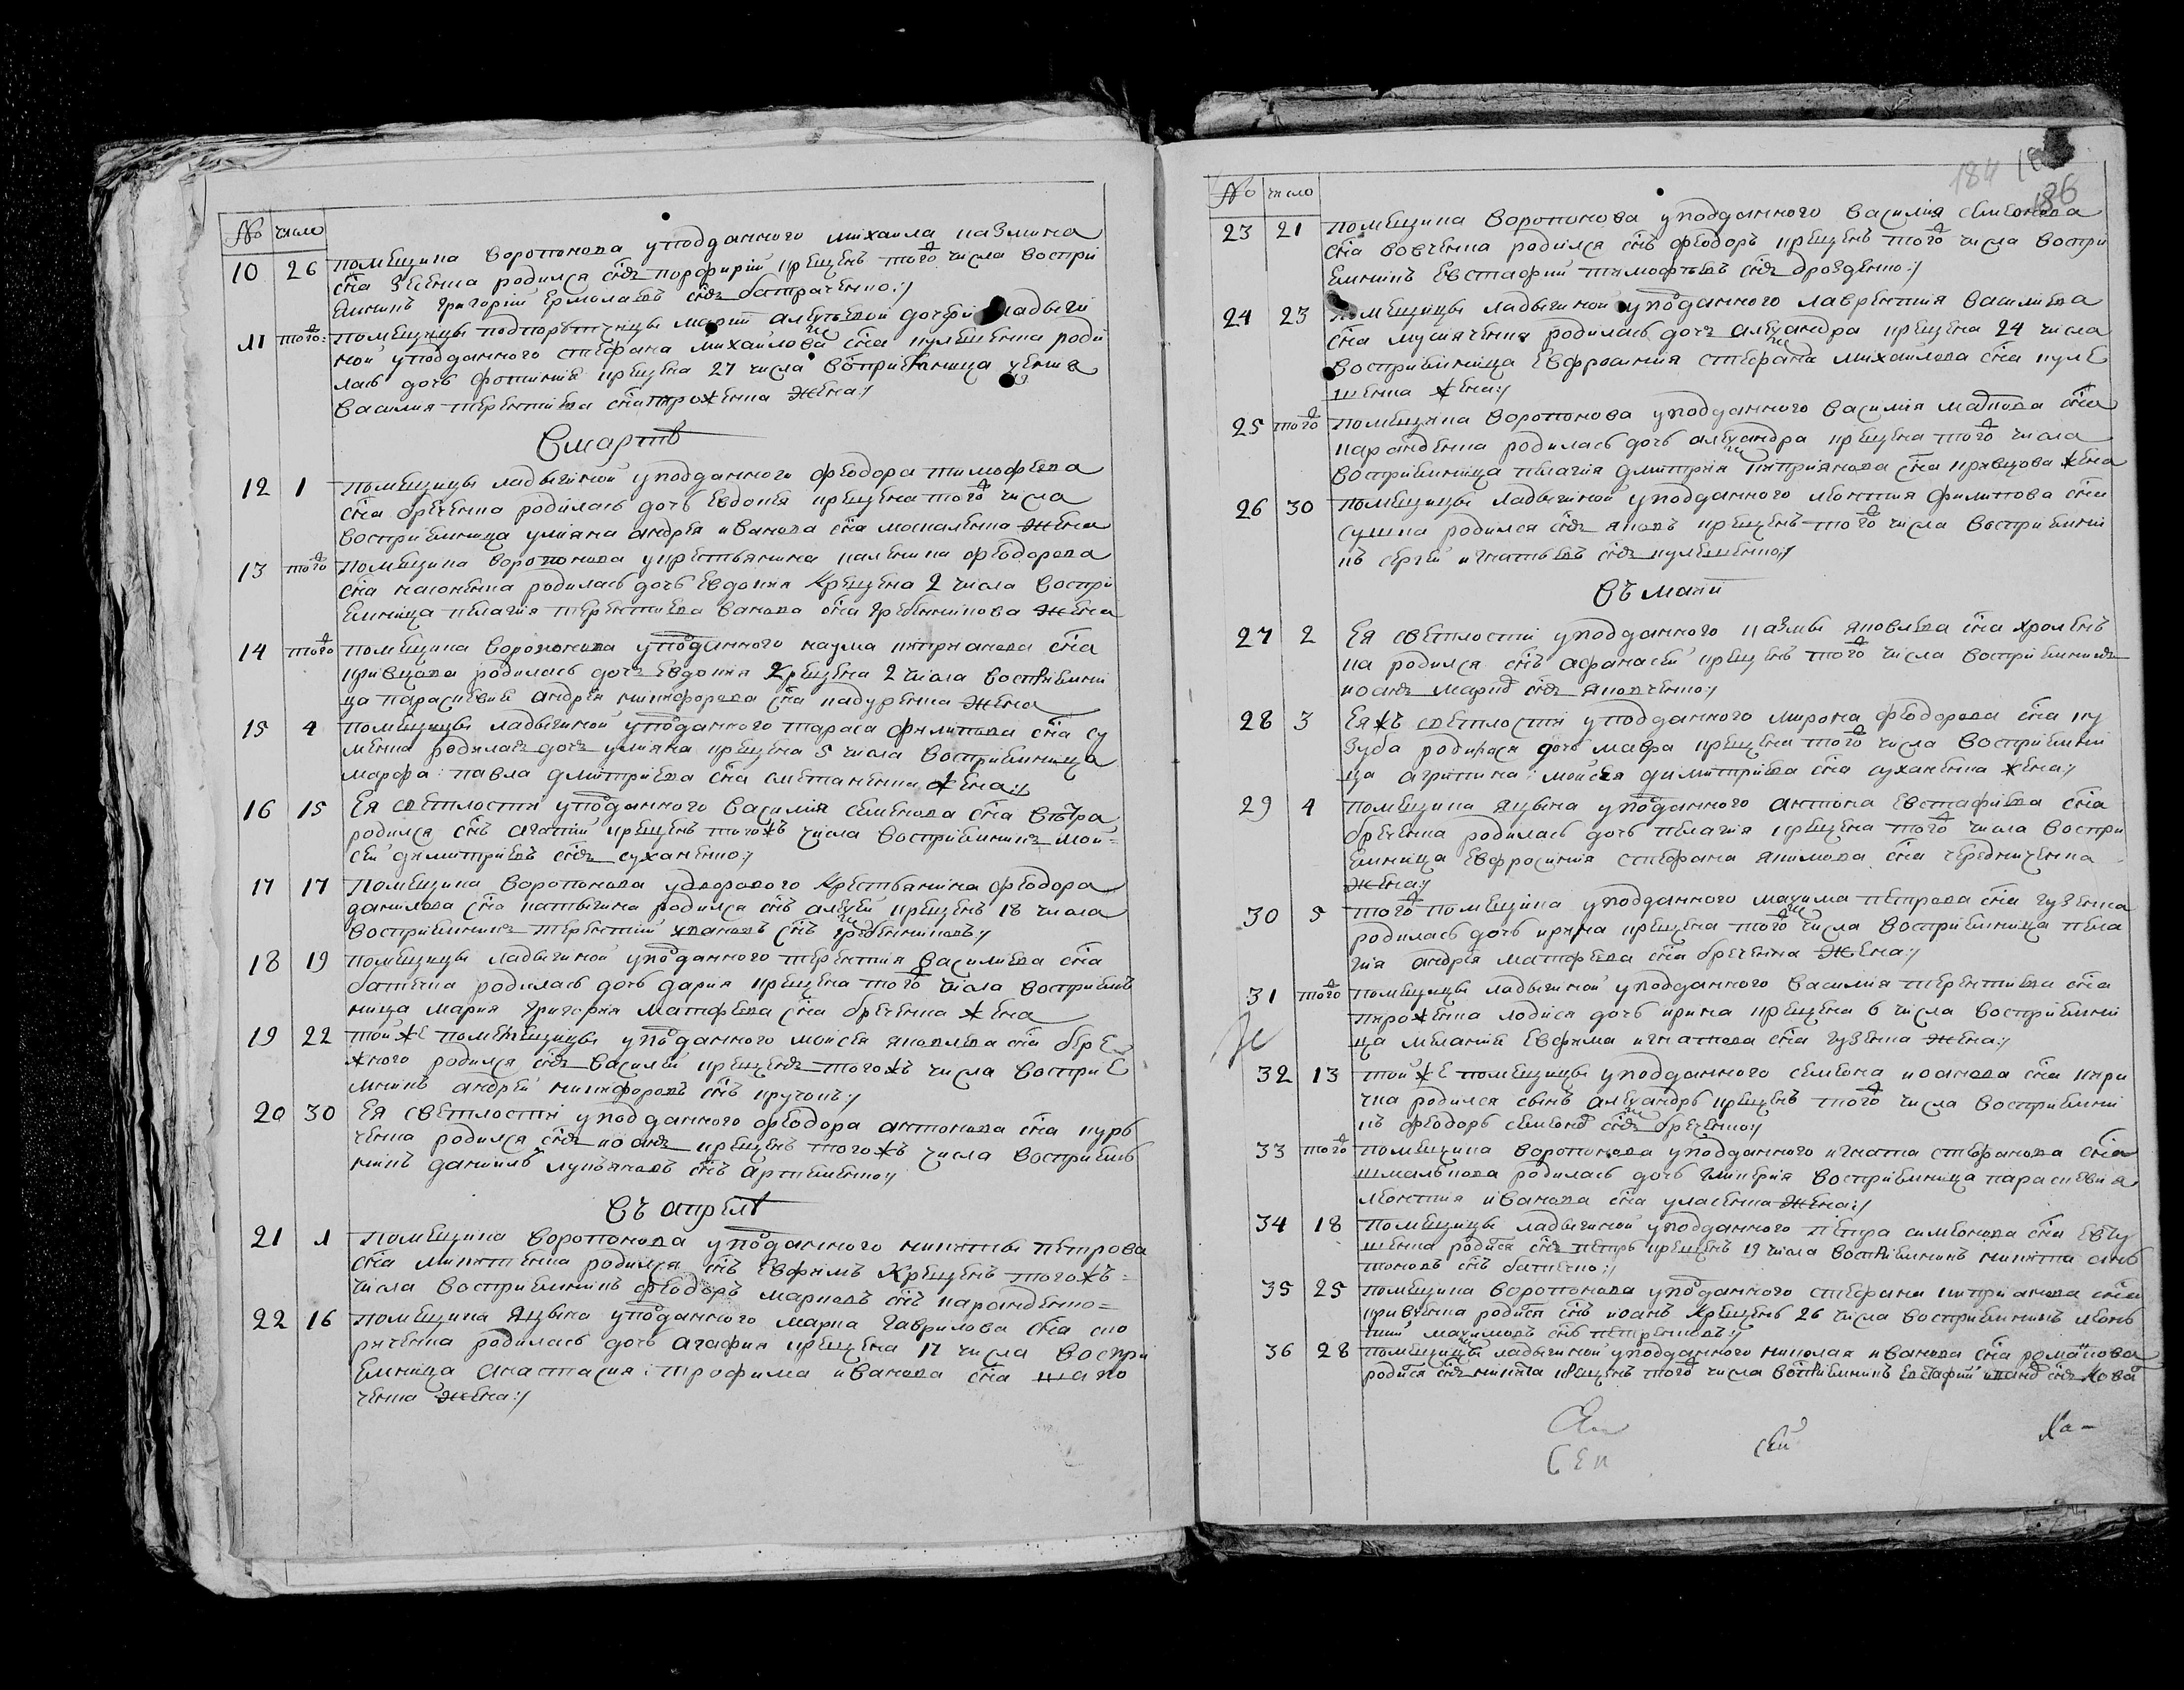 № число
10 26 помещика Воропонова уподданного михаила казмина
сна Зесенка родился снъ порфирий крещенъ того числа воспри
емникъ григорий Ермолаевъ снъ батраченко:/
11 того помещицы подпорутчицы марии алексеевой дочери Ладыги
ной уподданного стефана михайлова сна кулешенка роди
лась дочь фотиния крещена 27 числа восприемница
василия терентиева сна пироженка жена:/
Вмартѣ
12 1 помещицы ладыгиной уподданного феодора тимофеева
сна бреченка родилась дочь Евдокия крещена того числа
восприемница улияна андрея иванова сна москаленка жена
13 того помещика воропонова укрестьянина каленика феодорова
сна насоненка родилась дочь Евдокия Крещена 2 числа воспри
емница пелагия терентиева ванова сна гребенникова жена
14 того помещика воропонова уподданного наума киприанова сна
кривцова родилась дочь Евдокия Крещена 2 числа восприемни
ца параскевия андрея никифорова сна кадуренка жена
15 4 помещицы ладыгиной уподданного тараса филипова сна су
менка родилась дочь улияна крещена 5 числа восприемница
марфа: павла димитриева сна сметаненка жена:/
16 15 Ея светлости уподданного василия семенова сна вѣтра
родился снъ агапий крещенъ тогожъ числа восприемникъ мои=
сей димитриевъ снъ суханенко:/
17 17 Помещика воропонова удворового Крестьянина феодора
данилова сна катыгина родился снъ алексей крещенъ 18 числа
восприемникъ терентий ивановъ снъ гребенниковъ:/
18 19 помещицы ладыгиной уподданного терентия василиева сна
батечка родилась дочь дария крещена того числа восприем
ница мария григория матфеева сна бреченка жена
19 22 тойже помещицы уподданного моисея яковлева сна бере
жного родился снъ василий крещенъ тогожъ числа восприе
мникъ андрей никифоровъ снъ кручокъ:/
20 30 Ея светлости уподданного феодора антонова сна курь
ченка родился снъ иоанъ крещенъ тогожъ числа восприем
никъ даниилъ лукъяновъ снъ артеменко:/
Въ апрелѣ
21 1 Помещика воропонова уподданного никиты петрова
сна микитенка родился снъ Евфимъ Крещенъ тогожъ=
числа восприемникъ феодоръ марковъ снъ каранденко=
22 16 помещика яцына уподданного марка гаврилова сна ско
риченка родилась дочь агафия крещена 17 числа воспри
емница анастасия: трофима иванова сна шапо
ченка жена:/
184
186
№ число
23 21 помещика воропонова уподданного василия семионова
сна вовченка родился снъ феодоръ крещенъ того числа воспри
емникъ Евстафий тимофѣевъ снъ дрозденко:/
24 23 помещицы ладыгиной уподданного лаврентия василиева
сна мусияченка родилась дочь александра крещена 24 числа
восприемница Евфросиния стефана михайлова сна куле
шенка жена:/
25 того помещика воропонова уподданного василия маркова сна
каранденка родилась дочь александра крещена того числа
восприемница пелагия димитрия киприянова сна кривцова жена
26 30 помещицы ладыгиной уподданного леонтия филипова сна
сушка родился снъ яковъ крещенъ того числа восприемни
къ сергей игнатьевъ снъ кулешенко:/
въ маии
27 2 Ея светлости уподданного казмы яковлева сна хроленъ
ка родился снъ афанасий крещенъ того числа восприемникъ
иоанъ снъ яковченко:/
28 3 Еяжъ светлости уподданного мирона феодорова сна ку
зуба родилася дочь мавра крещена того числа восприемни
ца агрипина: моисея димитриева сна суханенка жена:/
29 4 помещика яцына уподданного антона Евстафиева сна
бреченка родилась дочь пелагия крещена того числа воспри
емница Евфросиния стефана якимова сна чередниченка
жена:/
30 5 того помещика уподданного максима петрова сна гузенка
родилась дочь ирина крещена того числа восприемница пела
гия андрея матфеева сна бреченка жена:/
31 того помещицы ладыгиной уподданного василия терентиева сна
пироженка родися дочь ирина крещена 6 числа восприемни
ца мелания Евфима игнатова сна гузенка жена:/
32 13 тойже помещицы уподданного семиона иоанова сна кири
чка родился сынъ александръ крещенъ того числа восприемни
къ феодоръ семионовъ снъ бреченко:/
33 того помещика воропонова уподданного игната стефанова сна
шмалкова родилась дочь гликерия восприемница параскевия
леонтия иванова сна уласенка жена:/
34 18 помещицы ладыгиной уподданного петра симеонова сна Евту
шенка родися снъ петръ крещенъ 19 числа восприемникъ никита
снъ батченко:/
35 25 помещика воропонова уподданного стефана киприанова сна
кривченка родися снъ иоанъ Крещенъ 26 числа восприемникъ леон
тий максимовъ снъ петренковъ:/
36 28 помещицы ладыгиной уподданного николая иванова сна романова
родися снъ никита крещенъ того числа восприемникъ Евстафий снъ Кова